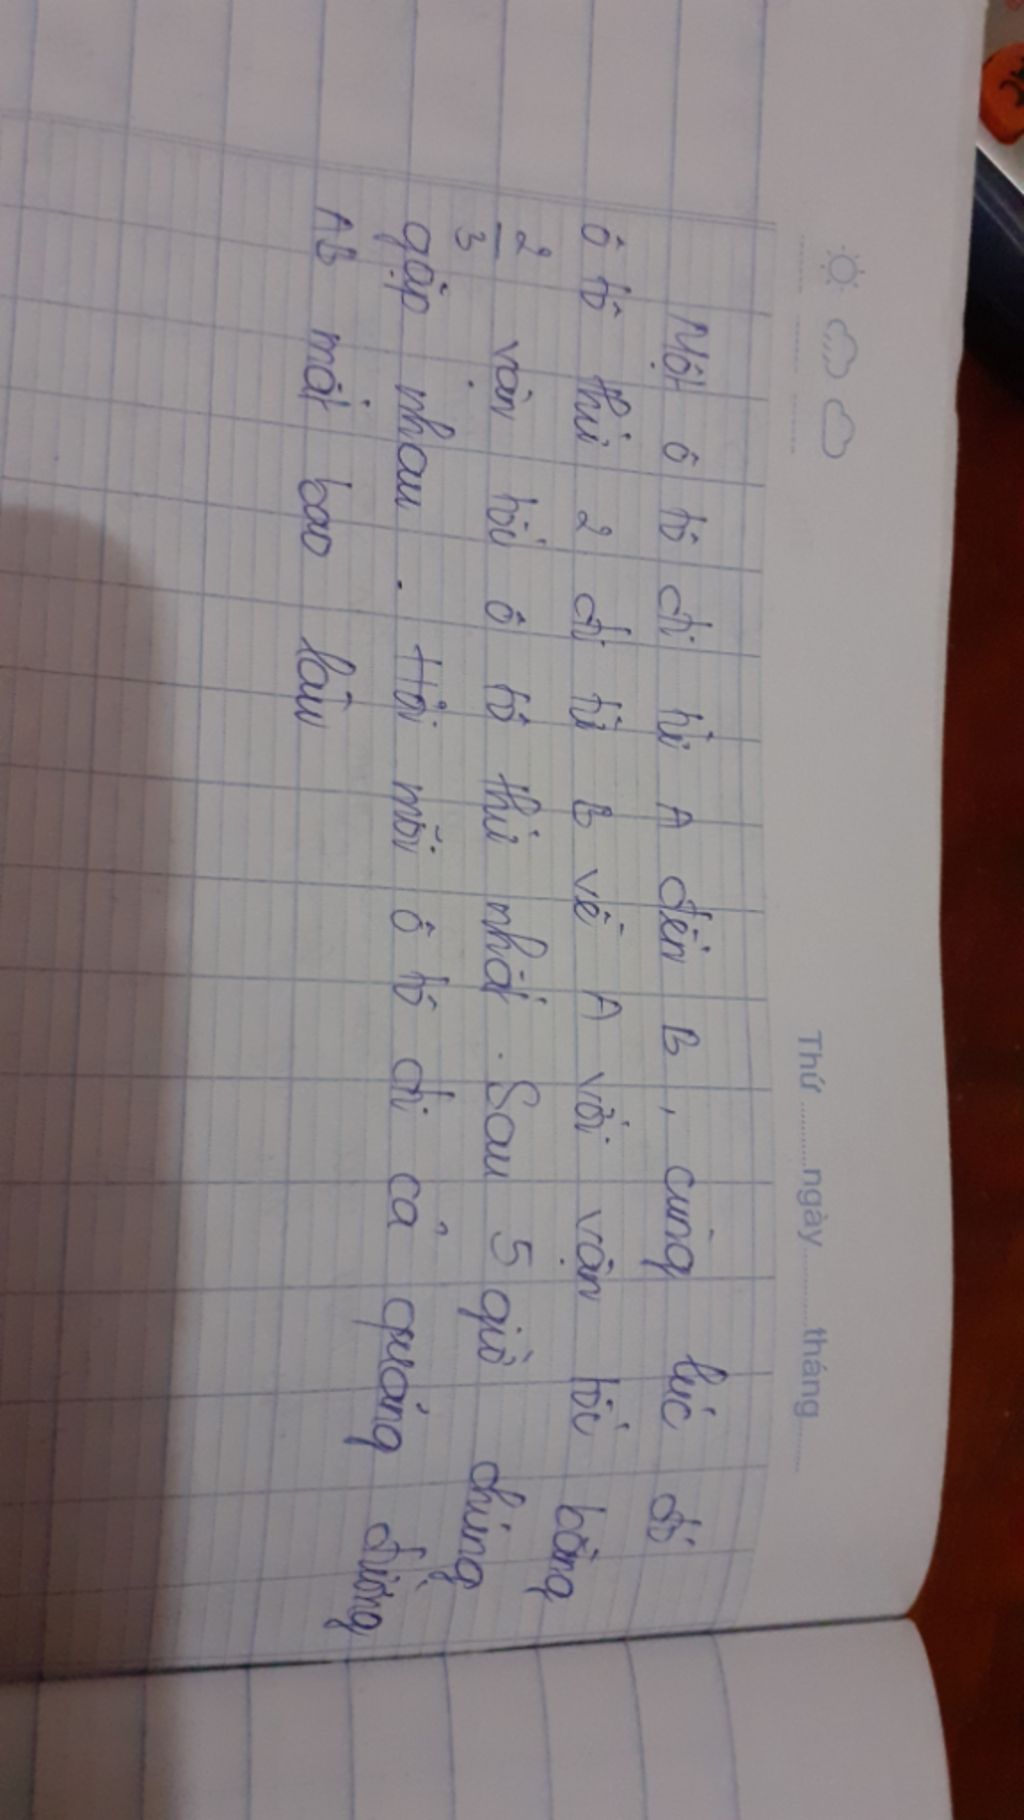 Thứ ............ngày............tháng............
Một ô tô đi từ A đến B, cùng lúc đó
ô tô thứ 2 đi từ B về A với vận tốc bằng
2/3 vận tốc ô tô thứ nhất. Sau 5 giờ chúng
gặp nhau. Hỏi mỗi ô tô đi cả quãng đường
AB mất bao lâu